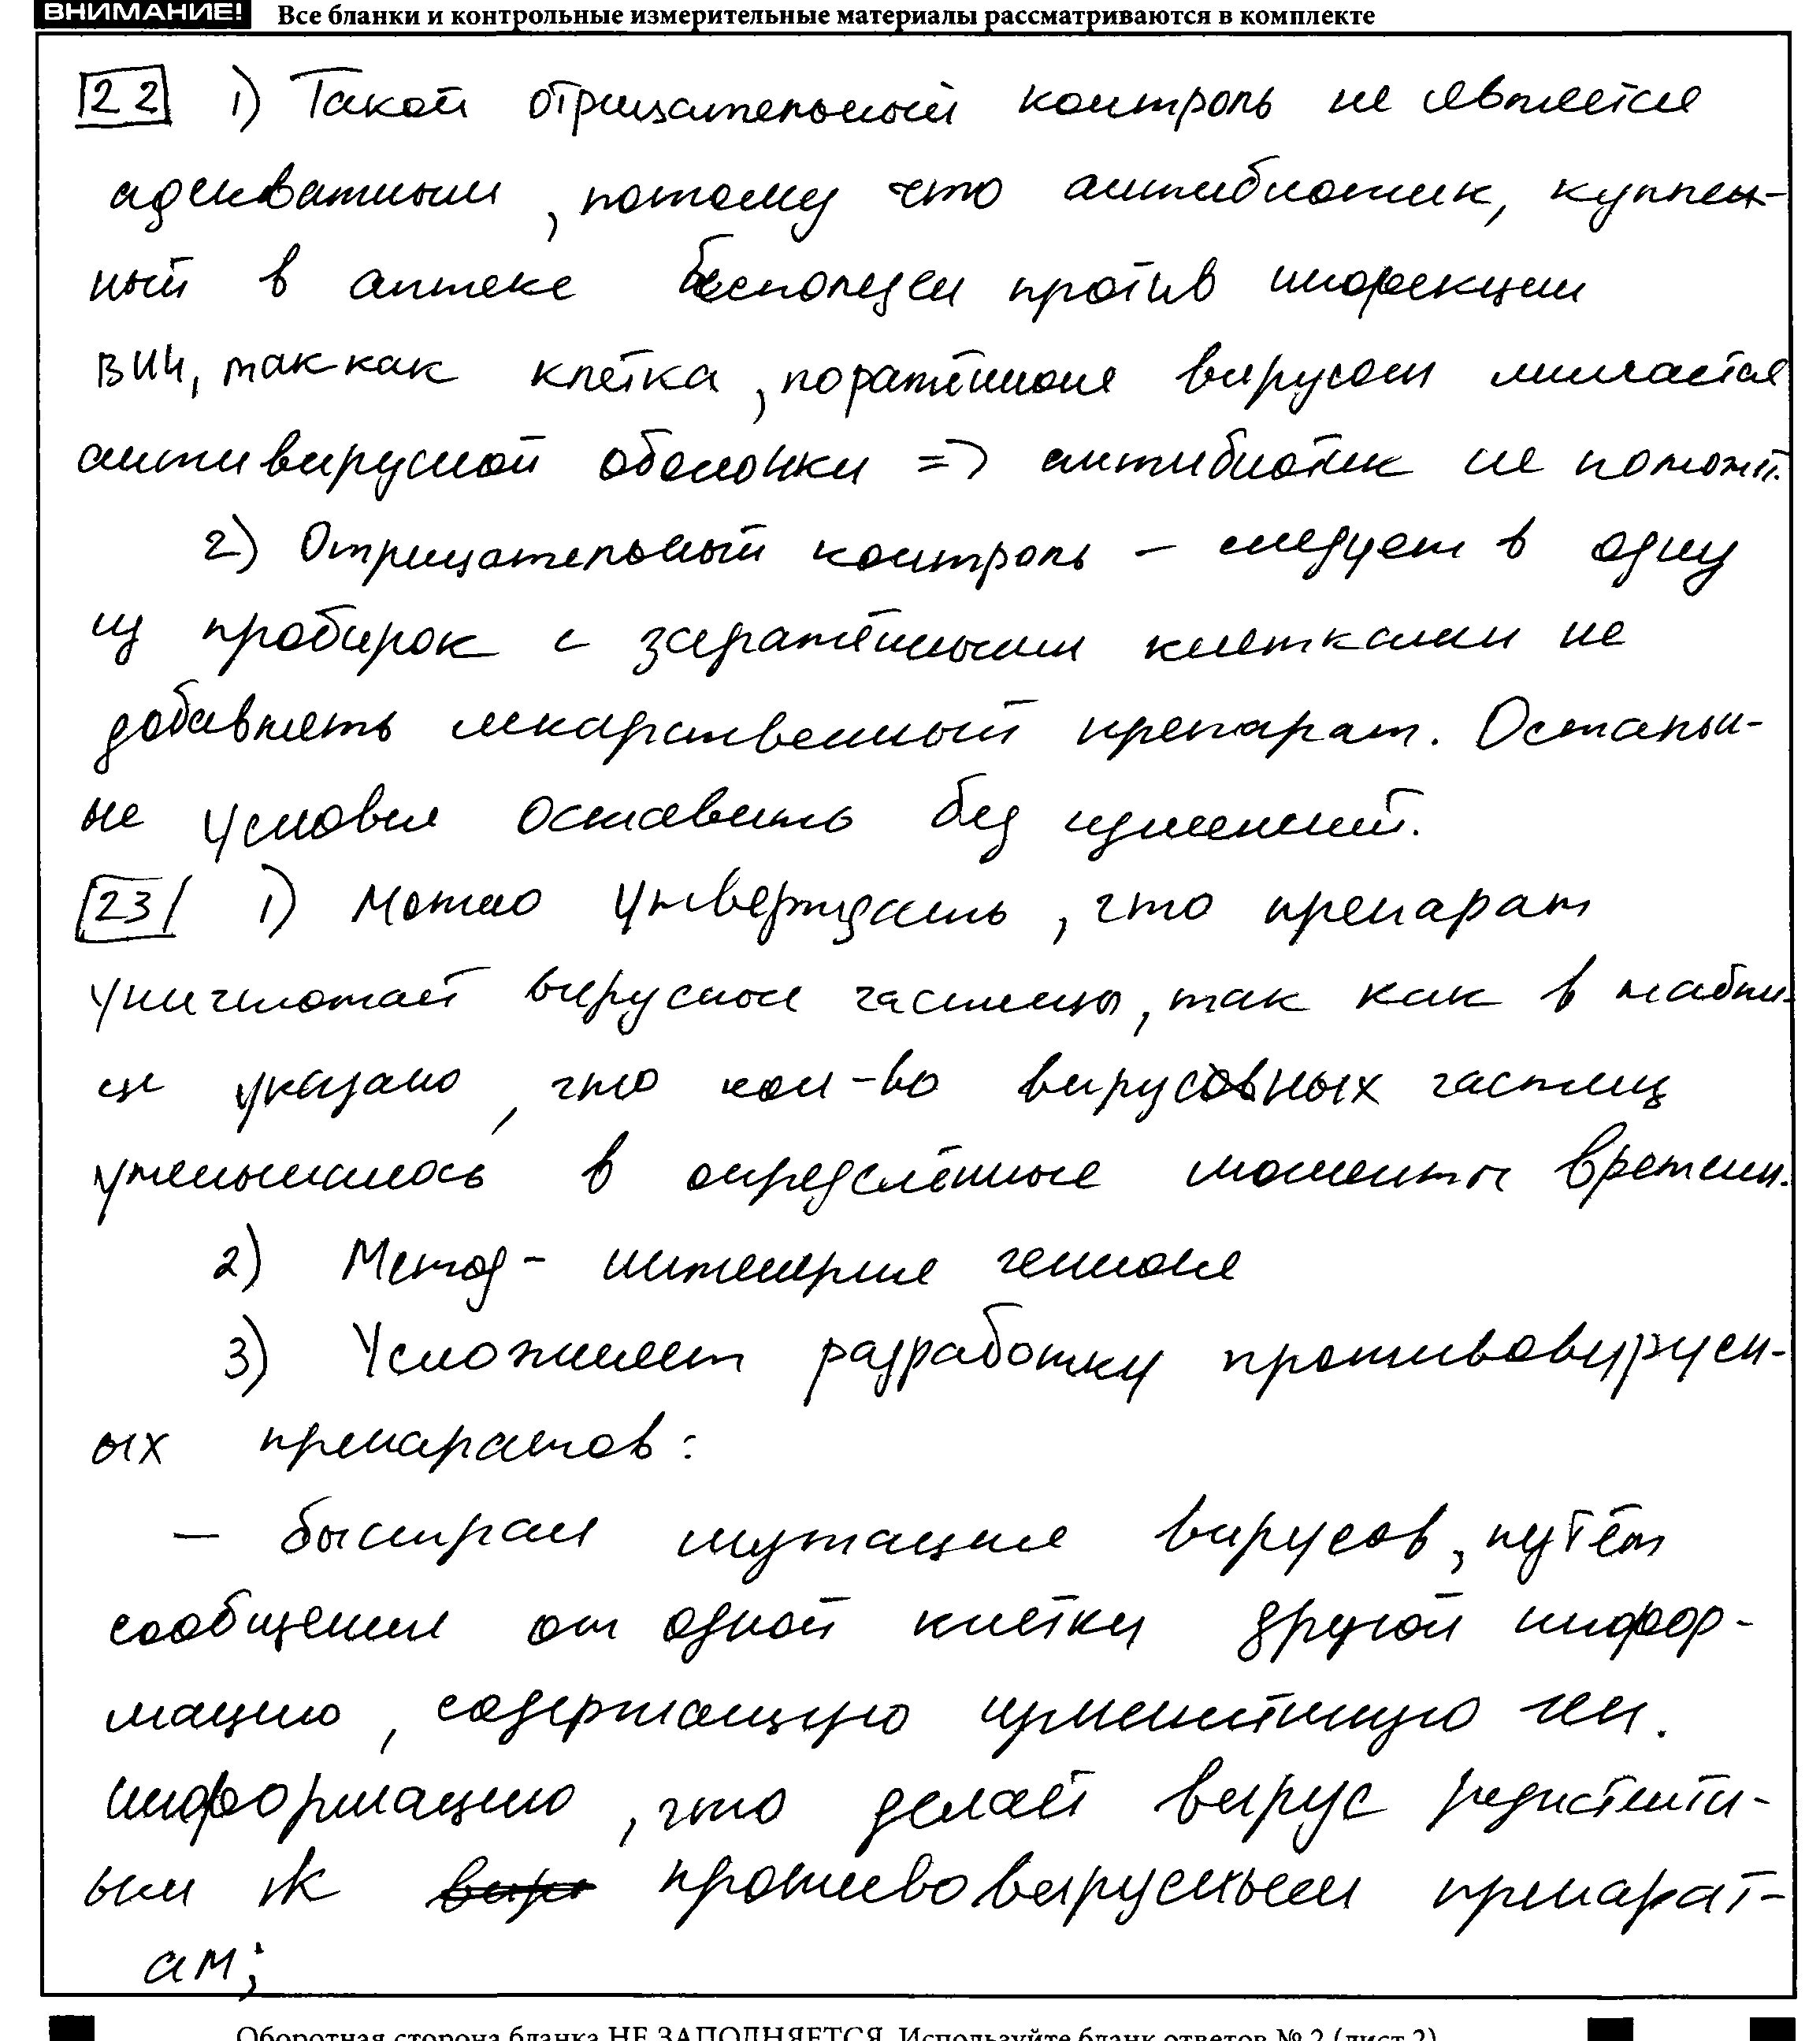 ВНИМАНИЕ! Все бланки и контрольные измерительные материалы рассматриваются в комплекте
22 1) Такой отрицательный контроль не является
адекватным, потому что антибиотик, куплен-
ный в аптеке бесполезен против инфекции
ВИЧ, так как клетка, поражённая вирусом лишается
антивирусной оболочки => антибиотик не поможет.
2) Отрицательный контроль – следует в одну
из пробирок с заражёнными клетками не
добавлять лекарственный препарат. Остальн-
ые условия оставить без изменений.
23 1) Можно утверждать, что препарат
уничтожает вирусные частицы, так как в табли-
це указано, что кол-во вирусных частиц
уменьшилось в определённые моменты времени.
2) Метод - инженерия генная
3) Усложняет разработку противовирусн-
ых препаратов:
– быстрая мутация вирусов, путём
сообщения от одной клетки другой инфор-
мацию, содержащую изменённую ген.
информацию, что делает вирус резистентн-
ым к противовирусным препарат-
ам;
Оборотная сторона бланка НЕ ЗАПОЛНЯЕТСЯ. Используйте бланк ответов № 2 (лист 2)